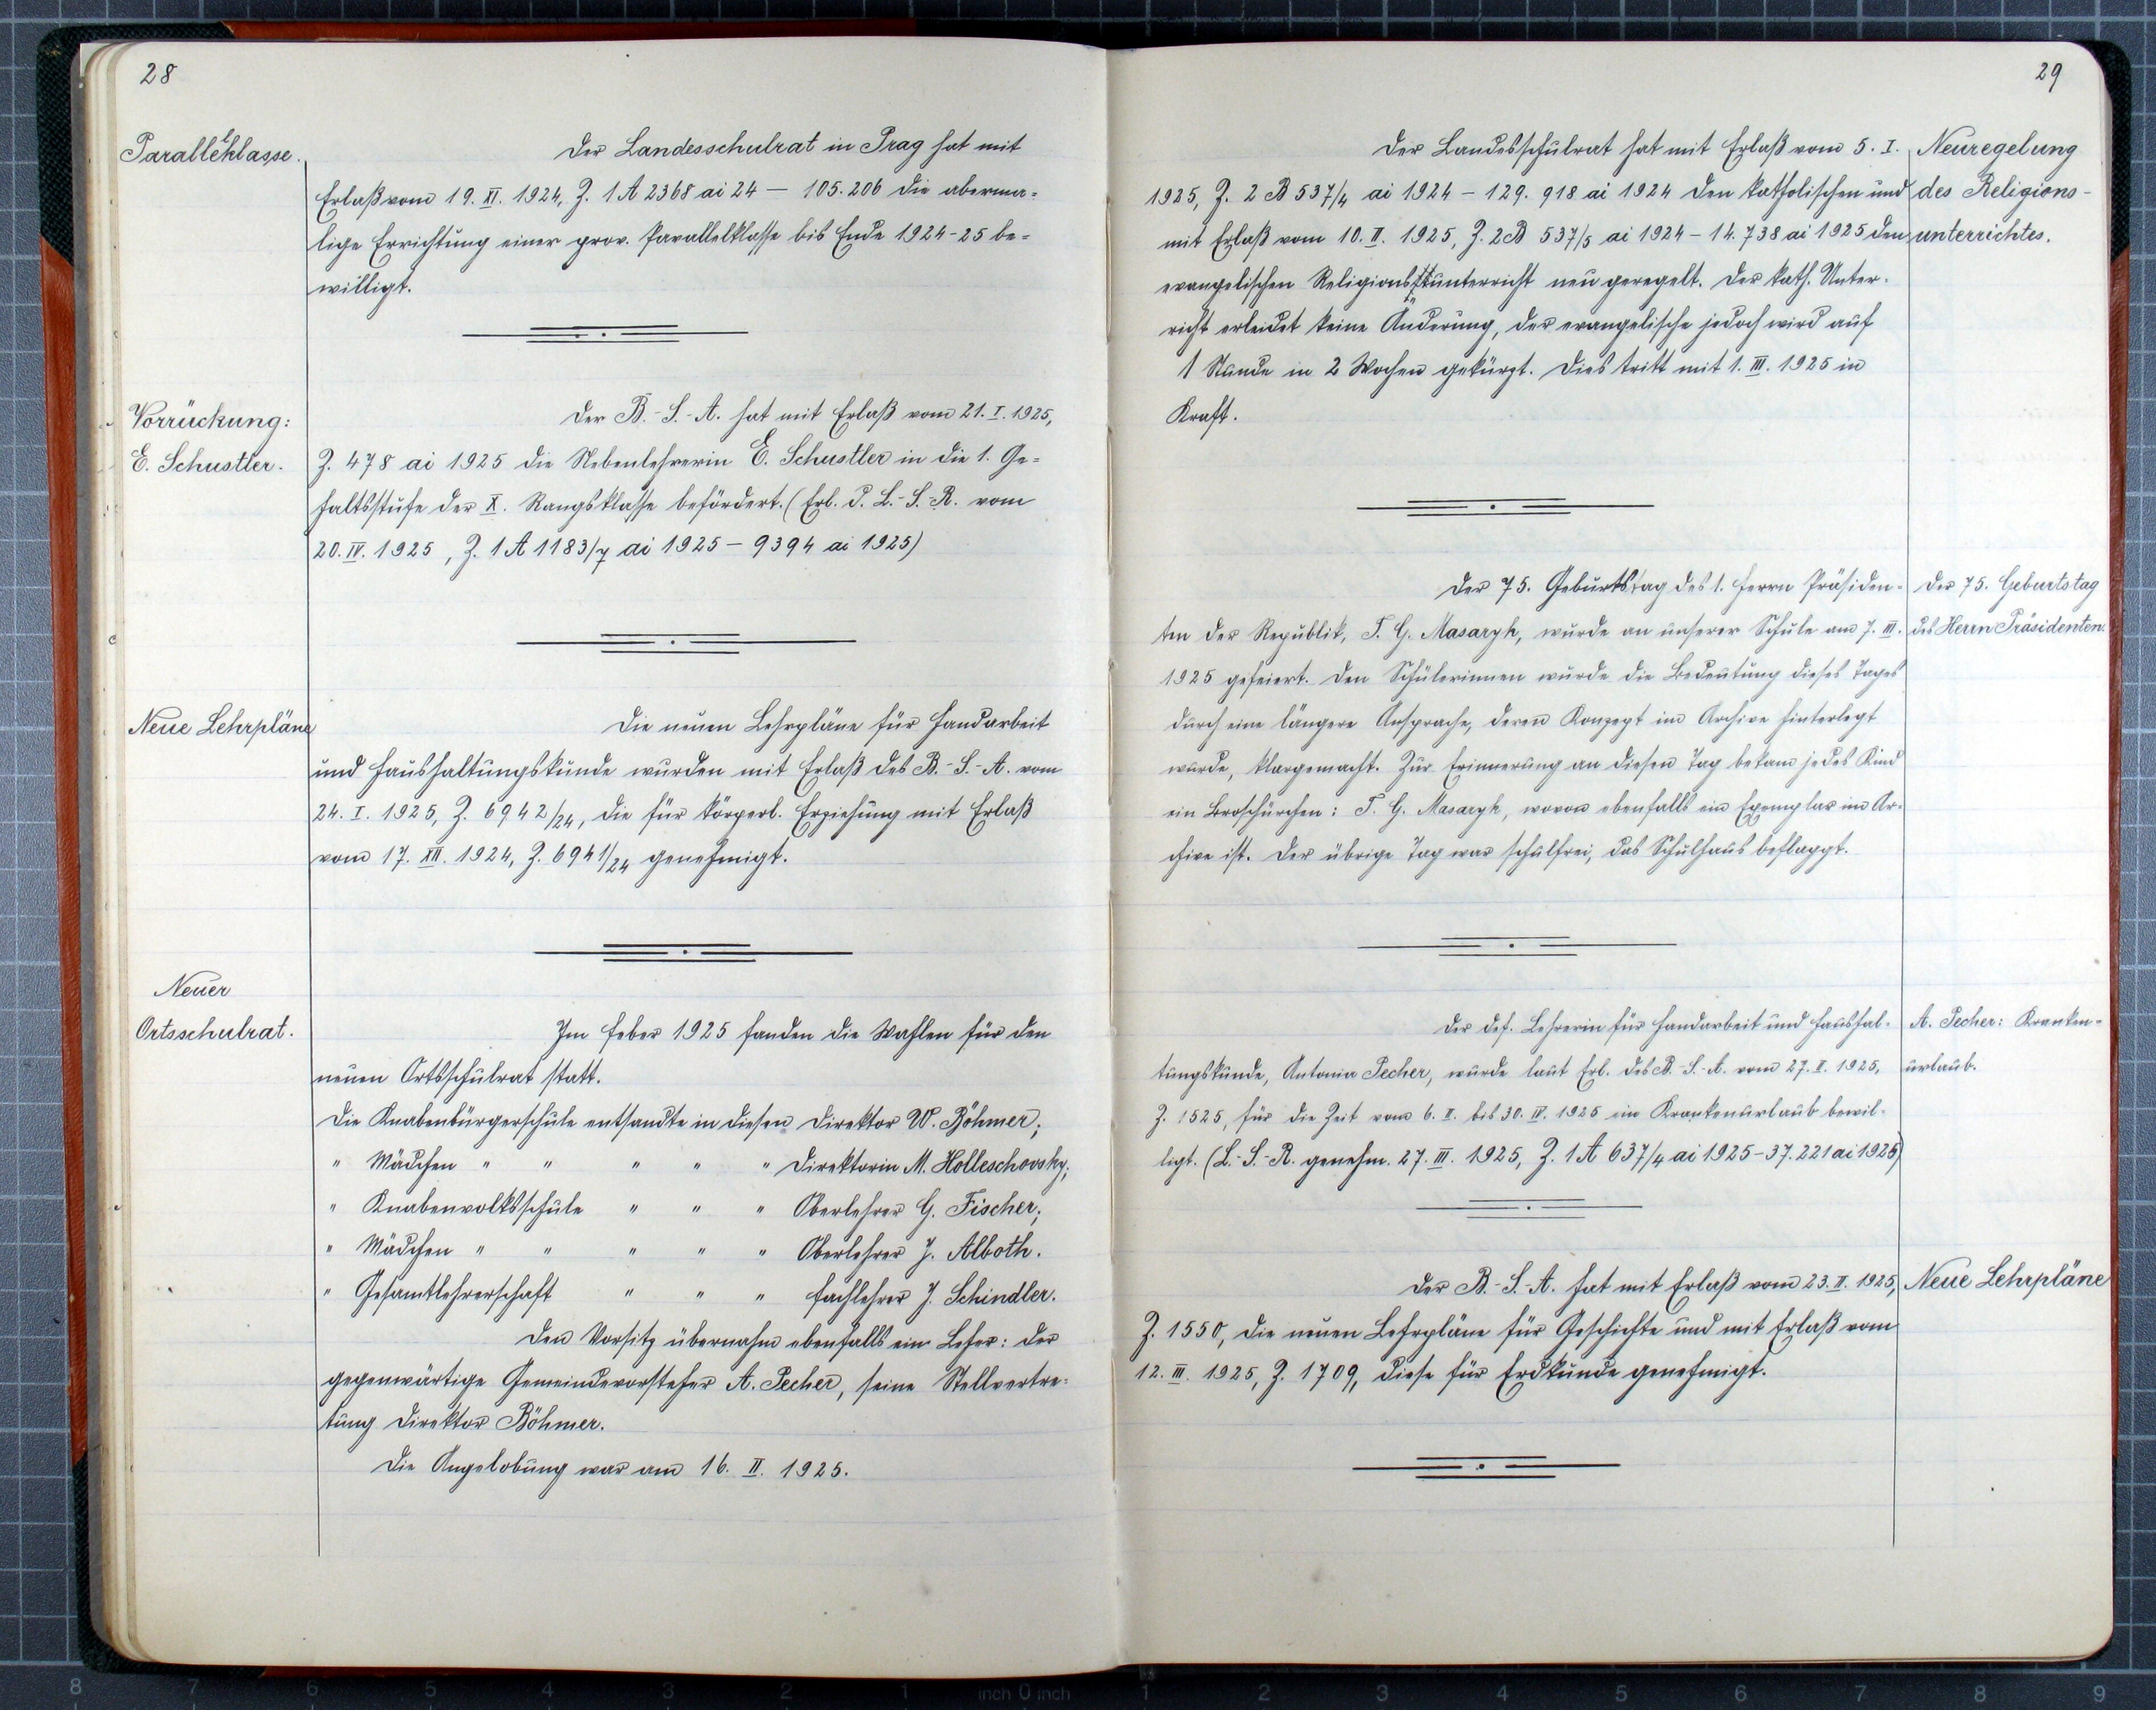 28
Parallelklasse.
Der Landesschulrat in Prag hat mit
Erlaß vom 19. XI. 1924, Z. 1 A 2368 ai 24 — 105.206 die aberma=
lige Errichtung einer prov. Parallelklasse bis Ende 1924-25 be=
willigt.
Vorrückung:
E. Schustler.
Der B.-S.-A. hat mit Erlaß vom 21. I. 1925,
Z. 478 ai 1925 die Nebenlehrerin E. Schustler in die 1. Ge=
haltsstufe der X. Rangsklasse befördert. (Erl. d. L.-S.-R. vom
20. IV. 1925, Z. 1 A 1183/7 ai 1925 — 9394 ai 1925)
Neue Lehrpläne
Die neuen Lehrpläne für Handarbeit
und Haushaltungskunde wurden mit Erlaß des B.-S.-A. vom
24. I. 1925, Z. 6942/24, die für körperl. Erziehung mit Erlaß
vom 17. XII. 1924, Z. 6941/24 genehmigt.
Neuer
Ortsschulrat.
Im Feber 1925 fanden die Wahlen für den
neuen Ortsschulrat statt.
Die Knabenbürgerschule entsandte in diesen Direktor W. Böhmer;
" Mädchen " " " " " Direktorin M. Holleschovsky;
" Knabenvolksschule " " " Oberlehrer G. Fischer;
" Mädchen " " " " " Oberlehrer J. Alboth.
" Gesamtlehrerschaft " " " Fachlehrer J. Schindler.
Den Vorsitz übernahm ebenfalls ein Lehrer: der
gegenwärtige Gemeindevorsteher A. Pecher, seine Stellvertre=
tung Direktor Böhmer.
Die Angelobung war am 16. II. 1925.
29
Der Landesschulrat hat mit Erlaß vom 5. I.
1925, Z. 2 B 537/4 ai 1924 — 129.918 ai 1924 den katholischen und
mit Erlaß vom 10. II. 1925, Z. 2 B 537/5 ai 1924 — 14.738 ai 1925 den
evangelischen Religionsunterricht neu geregelt. Der kath. Unter-
richt erleidet keine Änderung, der evangelische jedoch wird auf
1 Stunde in 2 Wochen gekürzt. Dies tritt mit 1. III. 1925 in
Kraft.
Neuregelung
des Religions-
unterrichtes.
Der 75. Geburtstag des 1. Herrn Präsiden-
ten der Republik, T. G. Masaryk, wurde an unserer Schule am 7. III.
1925 gefeiert. Den Schülerinnen wurde die Bedeutung dieses Tages
durch eine längere Ansprache, deren Konzept im Archive hinterlegt
wurde, klargemacht. Zur Erinnerung an diesen Tag bekam jedes Kind
ein Broschürchen: T. G. Masaryk, wovon ebenfalls ein Exemplar im Ar-
chive ist. Der übrige Tag war schulfrei, das Schulhaus beflaggt.
Der 75. Geburtstag
des Herrn Präsidenten.
Der def. Lehrerin für Handarbeit und Haushal-
tungskunde, Antonia Pecher, wurde laut Erl. des B.-S.-A. vom 27. II. 1925,
Z. 1525, für die Zeit vom 6. II. bis 30. IV. 1925 ein Krankenurlaub bewil-
ligt. (L.-S.-R. genehm. 27. III. 1925, Z. 1 A 637/4 ai 1925 — 37.221 ai 1925)
A. Pecher: Kranken=
urlaub.
Der B.-S.-A. hat mit Erlaß vom 23. II. 1925,
Z. 1550, die neuen Lehrpläne für Geschichte und mit Erlaß vom
12. III. 1925, Z. 1709, diese für Erdkunde genehmigt.
Neue Lehrpläne
8 7 6 5 4 3 2 1 inch 0 inch 1 2 3 4 5 6 7 8 9